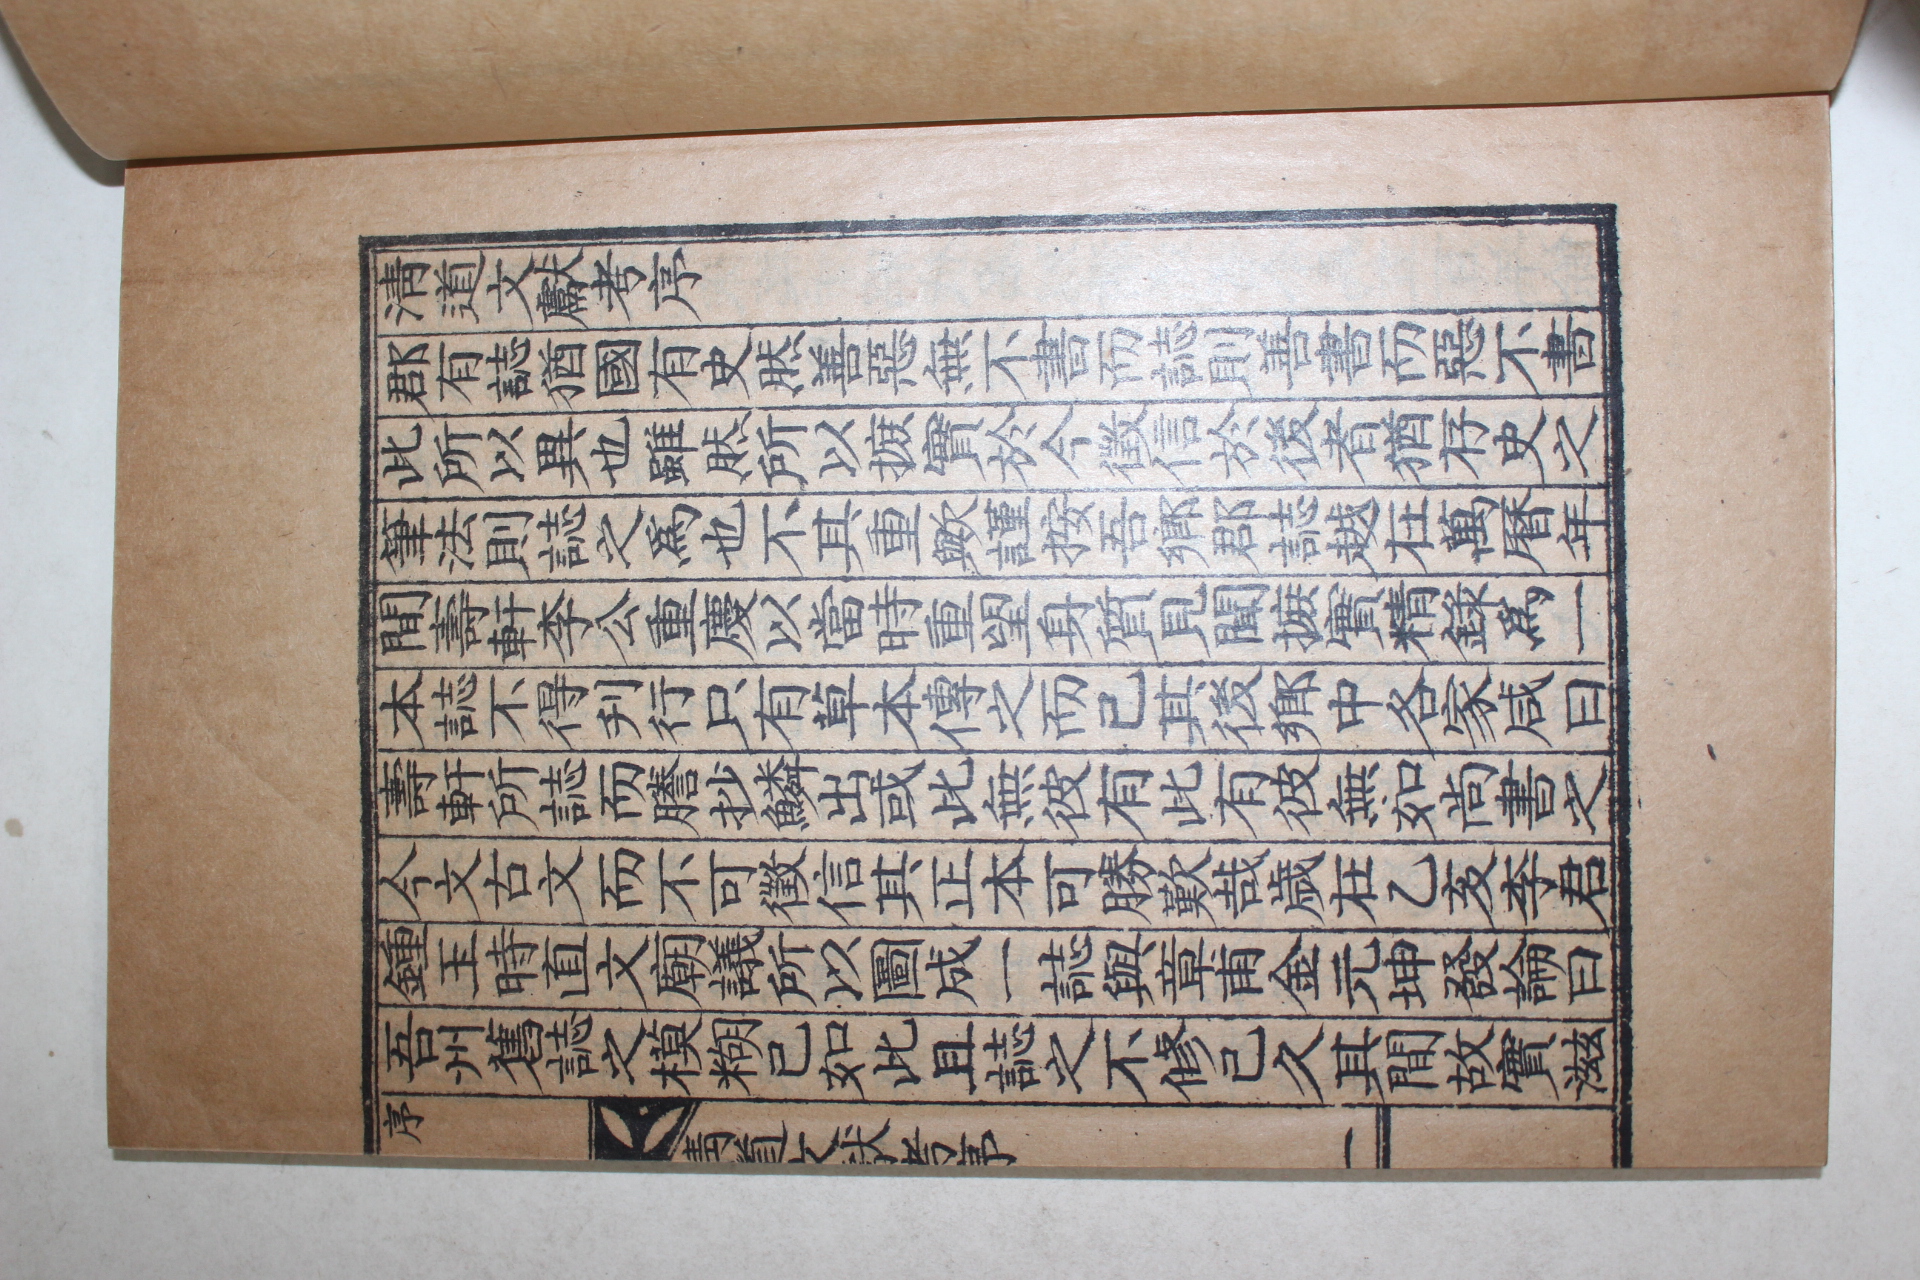 清道文獻考序
郡有誌猶國有史然善惡無不書而誌則善書而惡不書
此所以異也雖然所以摭實於今徵信於後者猶存史之
筆法則誌之爲也不其重歟謹按吾鄕郡誌越在萬曆年
間壽軒李公重慶以當時重望身質見聞摭實精錄爲一
本誌不得刋行只有草本傳之而已其後鄕中各家咸曰
壽軒所誌而謄抄鱗出或此無彼有此有彼無如尙書之
今文古文而不可徵信其正本可勝歎哉歲在乙亥李君
鍾玉時直文廟議所以圖成一誌與章甫金元坤發論曰
吾州舊誌之模糊已如此且誌之不修已久其間故實滋
序
淸道文獻考序 一